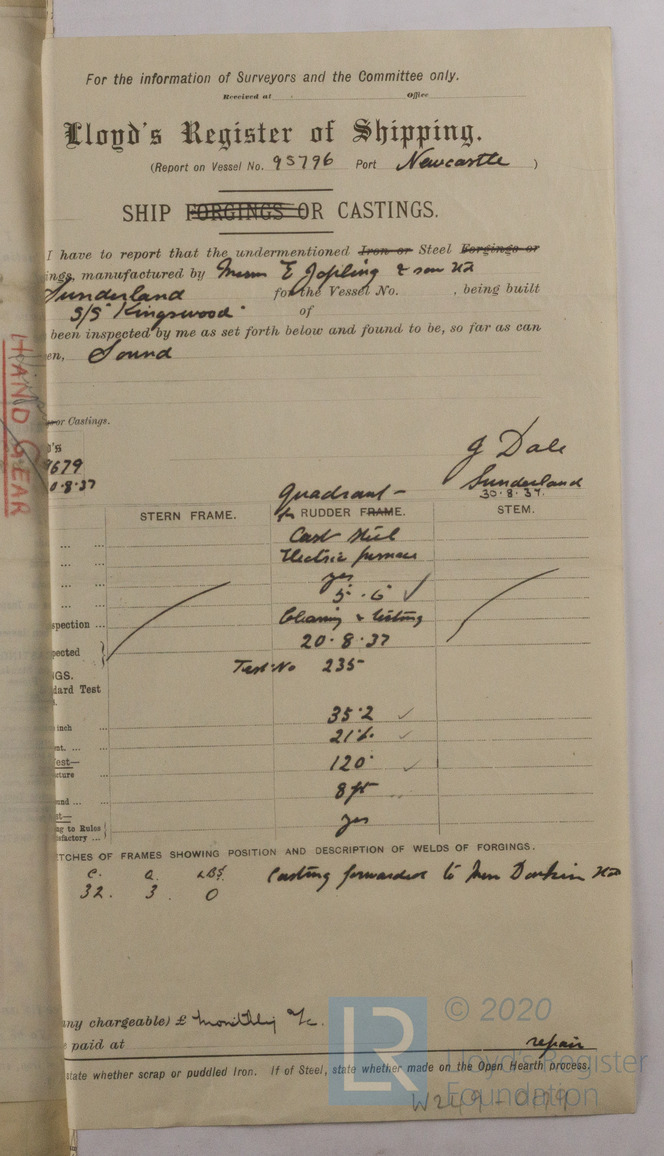 For the information of Surveyors and the Committee only.
Received at Office
Lloyd's Register of Shipping.
(Report on Vessel No. 95796 Port Newcastle )
SHIP FORGINGS OR CASTINGS.
I have to report that the undermentioned Iron or Steel Forgings or
ings, manufactured by Messrs E Jopling & son Ltd
Sunderland for the Vessel No. , being built
S/S "Kingswood" of
been inspected by me as set forth below and found to be, so far as can
en, Sound
or Castings.
o's
9679
0.8.37
J Dale
Sunderland
30.8.37.
HAND GEAR
Quadrant
STERN FRAME. RUDDER FRAME. STEM.
Cast Steel
Electric furnace
yes
5.6 ✓
spection Cleaning & testing
pected 20.8.37
GS. Test No 235
dard Test
inch 35.2 ✓
nt. 21%. ✓
est— 120° ✓
cture
und
st—
ng to Rules yes
isfactory
ETCHES OF FRAMES SHOWING POSITION AND DESCRIPTION OF WELDS OF FORGINGS.
C. Q. LBS. Casting forwarded to Messrs
32. 3. 0
any chargeable) £ monthly a/c.
paid at repair
state whether scrap or puddled Iron. If of Steel, state whether made on the Open Hearth process.
LR
© 2020
Lloyd's Register
Foundation
W249-0199